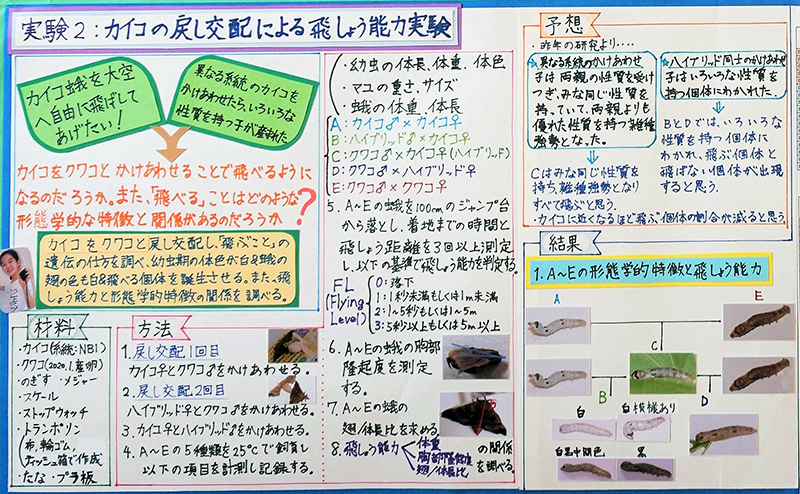 実験２：カイコの戻し交配による飛しょう能力実験
カイコ蛾を大空
へ自由に飛ばして
あげたい！
異なる系統のカイコを
かけあわせたら、いろいろな
性質を持つ子が産まれた
カイコをクワコとかけあわせることで飛べるように
なるのだろうか。また、「飛べる」ことはどのような
形態学的な特徴と関係があるのだろうか？
カイコをクワコと戻し交配し、「飛ぶこと」の
遺伝の仕方を調べ、幼虫期の体色が白&蛾の
翅の色も白&飛べる個体を誕生させる。また、飛
しょう能力と形態学的特徴の関係を調べる。
材料
・カイコ(系統:NB1)
・クワコ(2020.1.産卵)
・のぎす ・メジャー
・スケール
・ストップウォッチ
・トランポリン
(布、輪ゴム、
ティッシュ箱で作成)
・たな・プラ板
方法
1.戻し交配1回目
カイコ♀とクワコ♂をかけあわせる。
2.戻し交配2回目
ハイブリッド♀とクワコ♂をかけあわせる。
3.カイコ♀とハイブリッド♂をかけあわせる。
4.A～Eの5種類を25℃で飼育し
以下の項目を計測し記録する。
・幼虫の体長、体重、体色
・マユの重さ、サイズ
・蛾の体重、体長
A:カイコ♂×カイコ♀
B:ハイブリッド♂×カイコ♀
C:クワコ♂×カイコ♀(ハイブリッド)
D:クワコ♂×ハイブリッド♀
E:クワコ♂×クワコ♀
5.A～Eの蛾を100cmのジャンプ台
から落とし、着地までの時間と
飛しょう距離を3回以上測定
し、以下の基準で飛しょう能力を判定する。
FL
(Flying
Level)
0:落下
1:1秒未満もしくは1m未満
2:1～5秒もしくは1～5m
3:5秒以上もしくは5m以上
6.A～Eの蛾の胸部
隆起度を測定
する。
7.A～Eの蛾の
翅/体長比を求める。
8.飛しょう能力
体重
胸部隆起度
翅/体長比
の関係
を調べる。
予想
・昨年の研究より・・・・
☆異なる系統のかけあわせ
子は両親の性質を受け
つぎ、みな同じ性質を
持っていて、両親よりも
優れた性質を持つ雑種
強勢となった。
☆ハイブリッド同士のかけあわせ
子はいろいろな性質を
持つ個体にわかれた。
Cはみな同じ性質を
持ち、雑種強勢となり
すべて飛ぶと思う。
BとDでは、いろいろな
性質を持つ個体に
わかれ、飛ぶ個体と
飛ばない個体が出現
すると思う。
・カイコに近くなるほど飛ぶ個体の割合が減ると思う
結果
1.A～Eの形態学的特徴と飛しょう能力
A
E
C
B
D
白
白模様あり
白黒中間色
黒